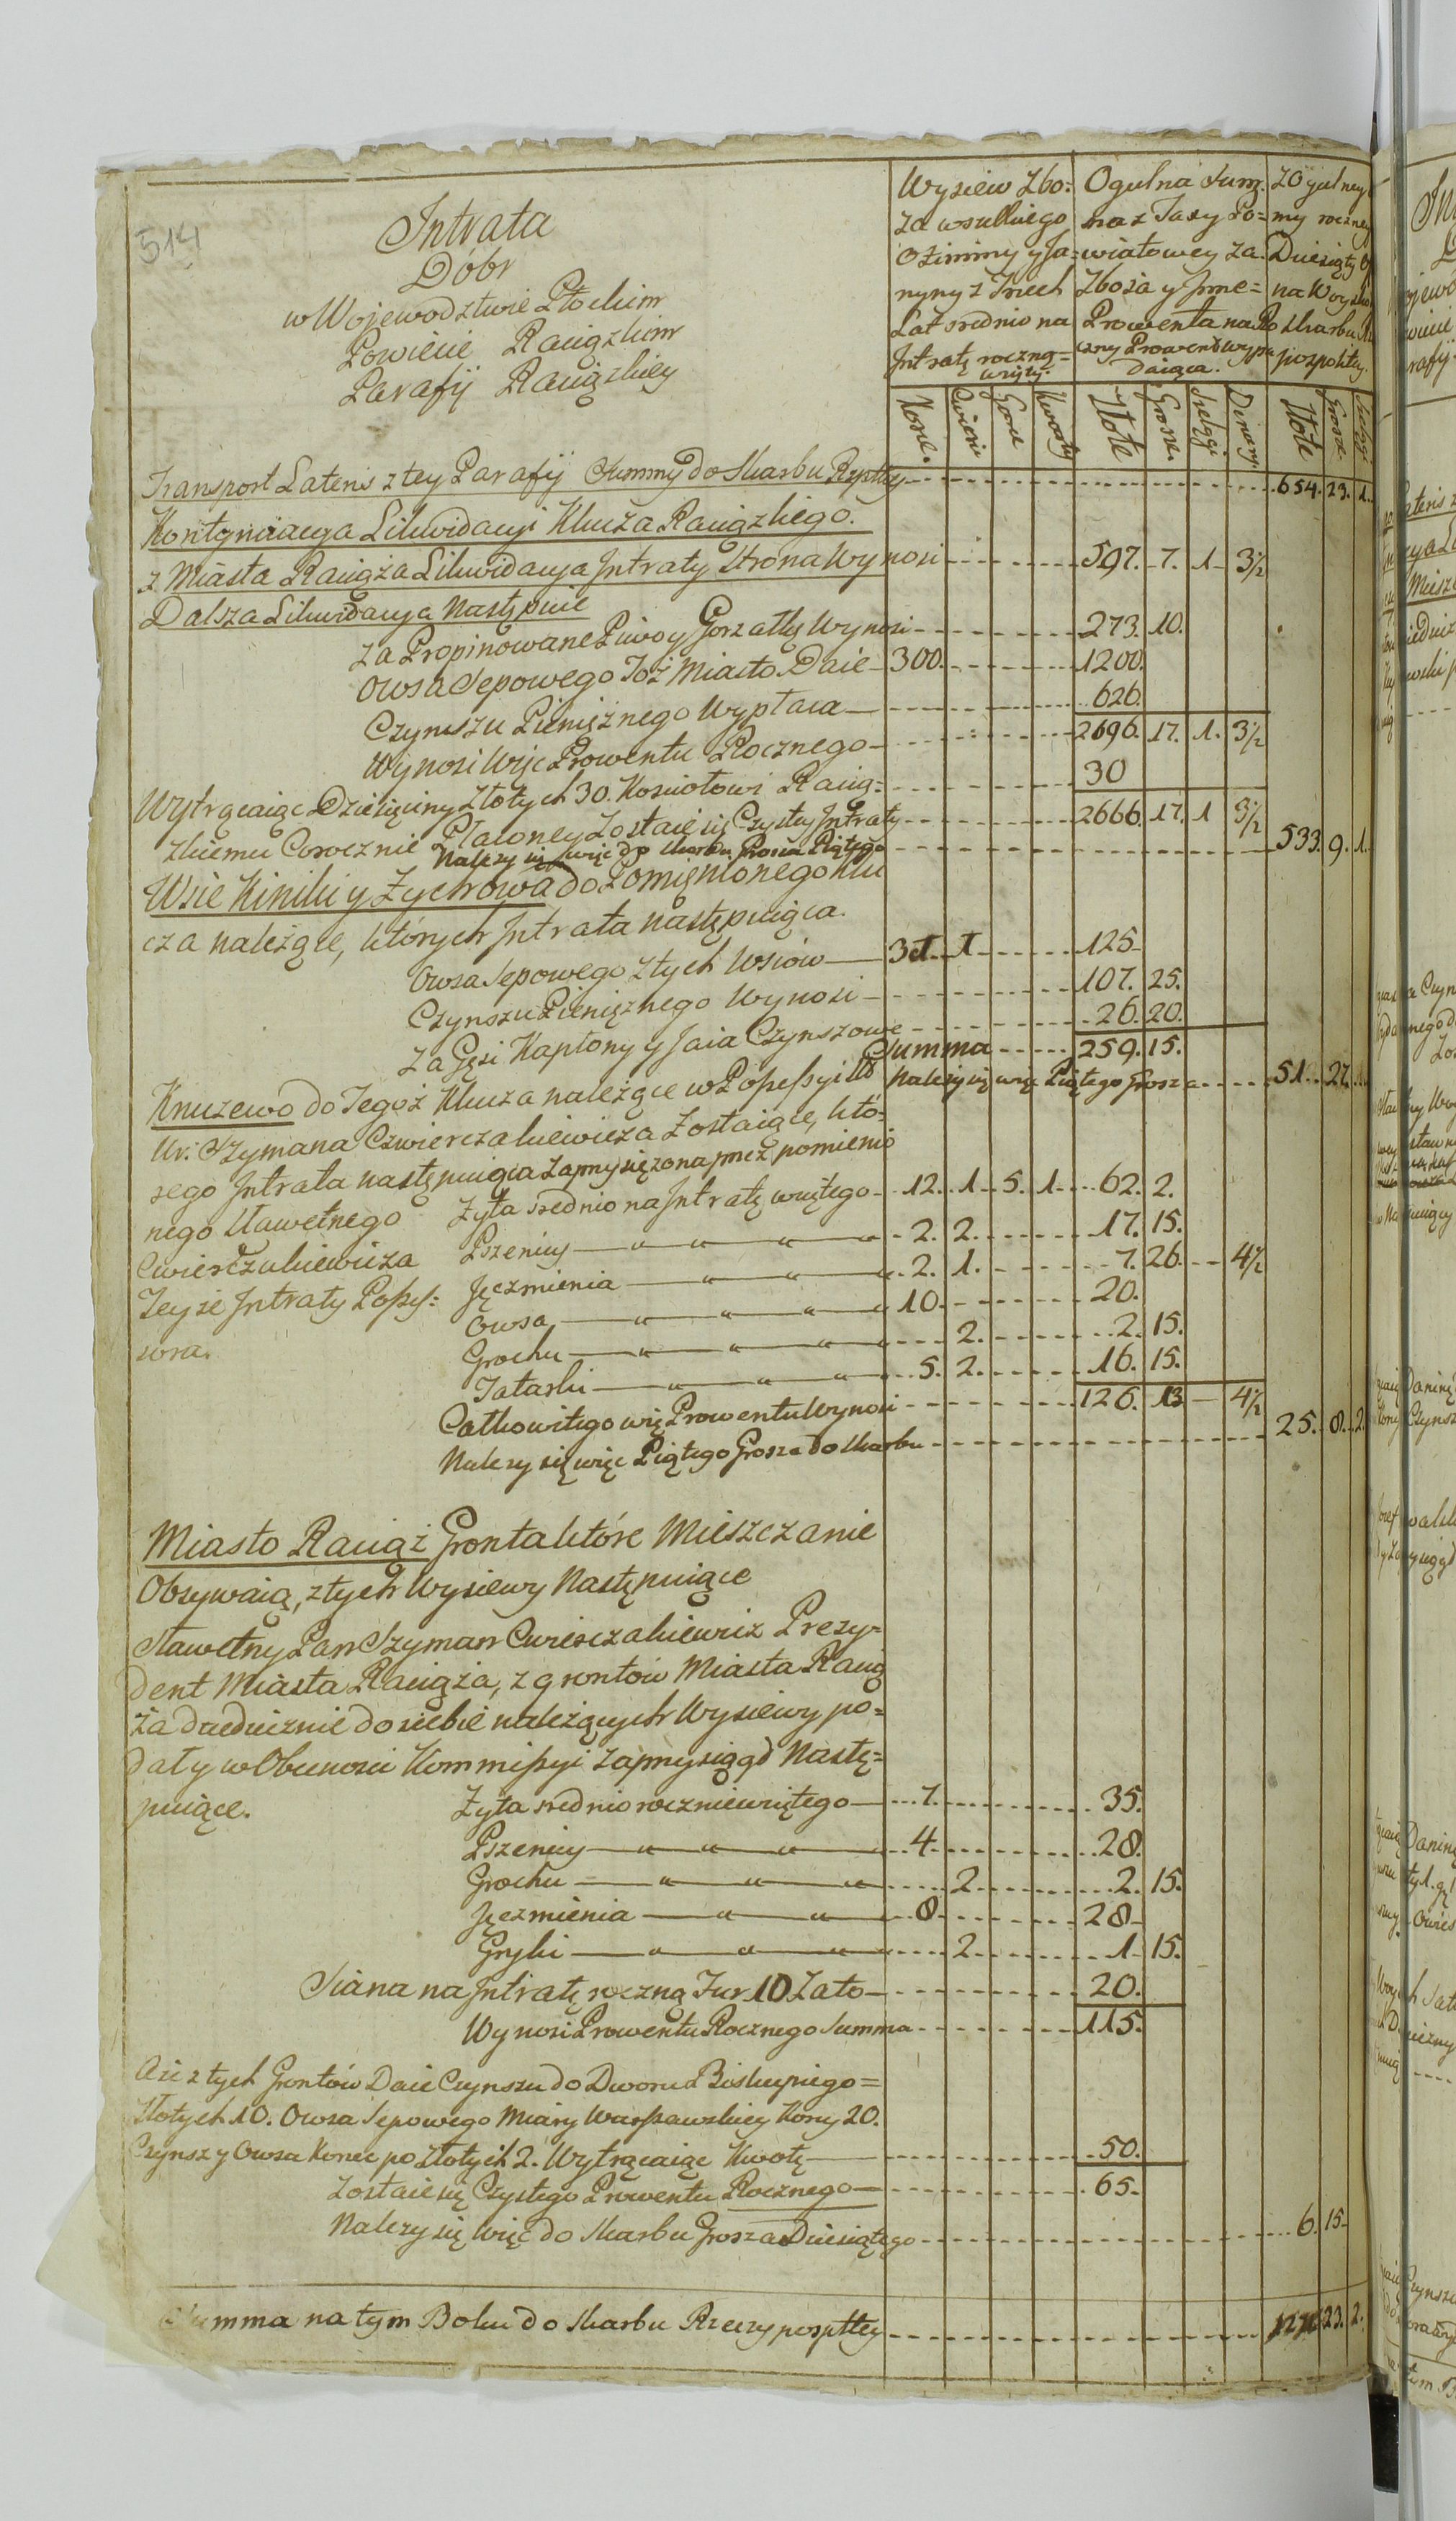 514
Intrata
Dóbr
w Wojewodztwie Płockim
Powiecie Raciązkim
Parafij Raciązkiey
Wysiew Zbo=
za wszelkiego
Ozimny y Ja=
nyny z Trzech
Lat srednio na
Intratę roczną=
wzięty.
Ogulna Sum=
ma z Taxy Po=
wiatowey za
Zboża y Jnne=
Prowenta na Ro
czny Prowent wypa
daiąca.
z Ogulney
my roczney
Dziesiąty
na Woysko
Skarbu
pospolitey.
Korce. Cwierci Garce Kwarty Złote Grosze. Szelągi Denary. Złote Grosze. Szelągi
Transport Lateris z tey Parafij Summy do Skarbu Rzpltey 654. 23. 1.
Kontynuacya Likwidacyi Klucza Raciązkiego.
z Miasta Raciąża Likwidacya Intraty Strona Wynosi 597. 7. 1 3½
Dalsza Likwidacya Następuie
za Propinowane Piwo y Gorzałkę Wynosi 273. 10.
Owsa Sepowego Toż Miasto Daie 300. 1200.
Czynszu Pieniężnego Wypłaca 626.
Wynosi Więc Prowentu Rocznego 2696. 17. 1. 3½
Wytrącaiąc Dziesięciny Złotych 30. Kosciołowi Raciąz= 30
zkiemu Corocznie Płaconey Zostaie się Czystey Intraty 2666. 17. 1 3½
Nalezy się więc do Skarbu Grosza Piątego 533. 9. 1.
Wsie Kiniki y Zychrowa do Pomięnionego Klu
cza należące, których Intrata następuiąca.
Owsa Sepowego z tych Wsiow 31. 1 125
Czynszu Pieniężnego Wynosi 107. 25.
za Gęsi Kapłony y Jaia Czynszowe 26. 20.
Summa 259. 15.
Nalezy się więc Piątego Grosza 51. 27.
Kruszewo do Tegoż Klucza należące w Possessyi
Ur: Szymana Czwierczakiewicza Zostaiące, któ=
rego Intrata następuiąca zaprzysiężona przez pomienio
nego Sławetnego
Cwierczakiewicza
Teyże Intraty Possess:
sora.
Zyta srednio na Intratę wziętego 12. 1. 5. 1. 62. 2.
Pszenicy " " " " 2. 2. 17. 15.
Jęczmienia " " " 2. 1. 7. 26. 4½
Owsa " " " " 10. 20.
Grochu " " " " 2. 2. 15.
Tatarki " " " 5. 2. 16. 15.
Całkowitego więc Prowentu Wynosi 126. 13 4½
Nalezy się więc Piątego Grosza do Skarbu 25. 8. 2.
Miasto Raciąż Gronta które Mieszczanie
Obsywaią, z tych Wysiewy Następuiące
Sławetny Pan Szyman Cwierczakiewicz Prezy=
dent Miasta Raciąża, z grontow Miasta Racią
ża dziedzicznie do siebie należących Wysiewy po=
dał y w Obecnosci Kommissyi zaprzysiągł Nastę=
puiące.
Zyta srednio rocznie wziętego 7. 35.
Pszenicy " " " 4 28.
Grochu " " " 2. 2. 15.
Jęczmienia " " 8. 28
Gryki " " " 2. 1. 15.
Siana na Intratę roczną Fur 10 Zato 20.
Wynosi Prowentu Rocznego Summa 115.
Aże z tych Grontów Daie Czynszu do Dworu Biskupiego=
Złotych 10. Owsa Sepowego Miary Warszawskiey Korcy 20.
Czynsz y Owsa Korzec po Złotych 2. Wytrącaiąc Kwotę 50.
Zostaie się Czystego Prowentu Rocznego 65.
Nalezy się Więc do Skarbu Grosza Dziesiątego 6. 15.
Summa na tym Boku do Skarbu Rzeczyposptley 23. 2.